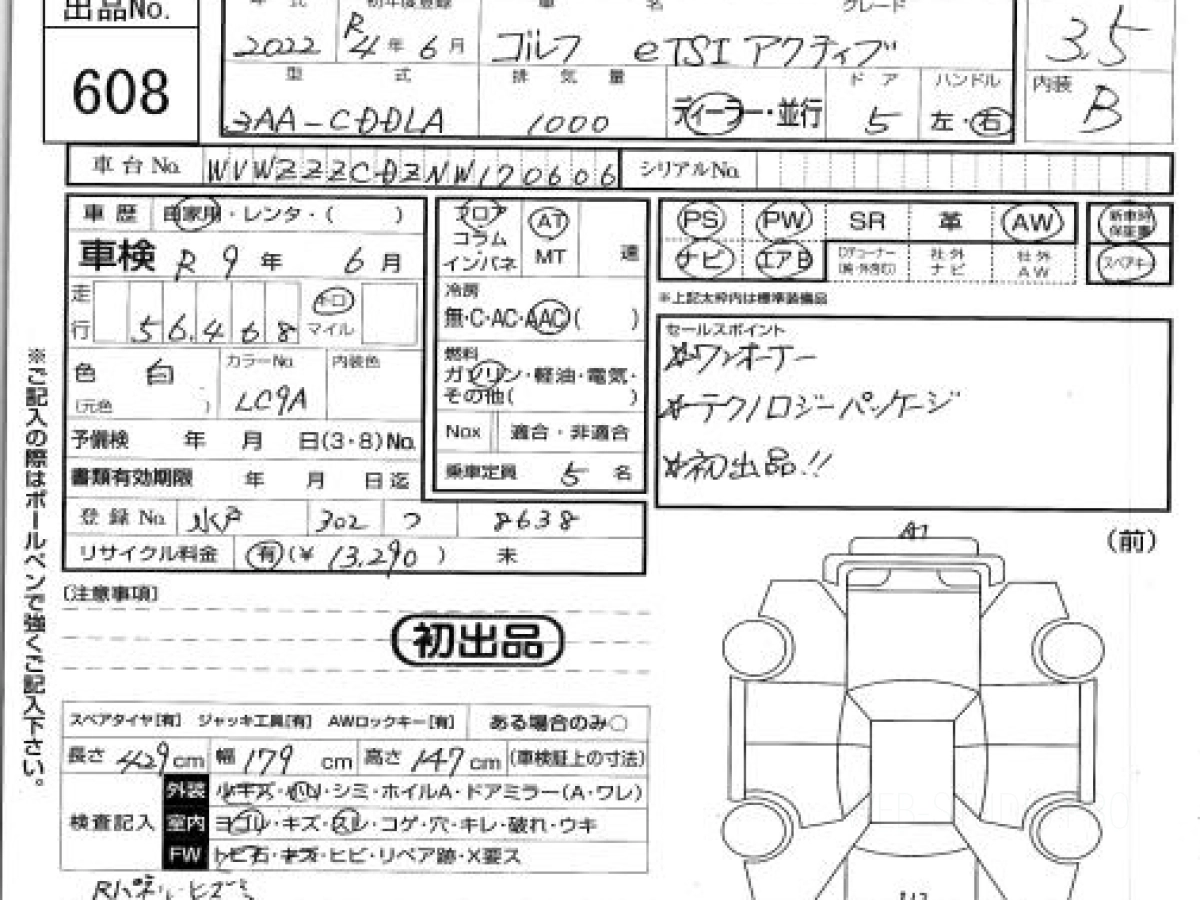 出品No.
608
年式 初年度登録 車名 グレード
2022 R4年6月 ゴルフ eTSI アクティブ
3.5
型式 排気量 ドア ハンドル 内装
3AA-CDDLA 1000 ディーラー・並行 5 左・右 B
車台No. WVWZZZCDZNW170606 シリアルNo.
車歴 自家用・レンタ・( )
車検 R9年6月
走行 56,468 キロ マイル
色 白 (元色 ) カラーNo. LC9A 内装色
予備検 年 月 日(3・8)No.
書類有効期限 年 月 日迄
登録No. 水戸 302 つ 8638
リサイクル料金 有(¥ 13,290 ) 未
フロア コラム インパネ AT MT 速
冷房
無・C・AC・AAC( )
燃料
ガソリン・軽油・電気・
その他( )
Nox 適合・非適合
乗車定員 5 名
PS PW SR 革 AW
ナビ エアB
社外ナビ 社外AW
新車時保証書
スペアキー
※上記太枠内は標準装備品
セールスポイント
※ワンオーナー
※テクノロジーパッケージ
※初出品!!
※ご記入の際はボールペンで強くご記入下さい。
〔注意事項〕
初出品
スペアタイヤ[有] ジャッキ工具[有] AWロックキー[有] ある場合のみ○
長さ 429cm 幅 179 cm 高さ 147cm (車検証上の寸法)
検査記入
外装 小キズ・ハリ・シミ・ホイルA・ドアミラー(A・ワレ)
室内 ヨゴレ・キズ・スレ・コゲ・穴・キレ・破れ・ウキ
FW トビ石・キズ・ヒビ・リペア跡・X要ス
A1
(前)